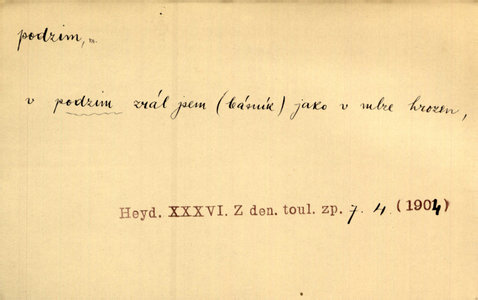 podzim, m.
v podzim zrál jsem (básník) jako v mlze hrozen,
Heyd. XXXVI. Z den. toul. zp. 7. 4. (1904)